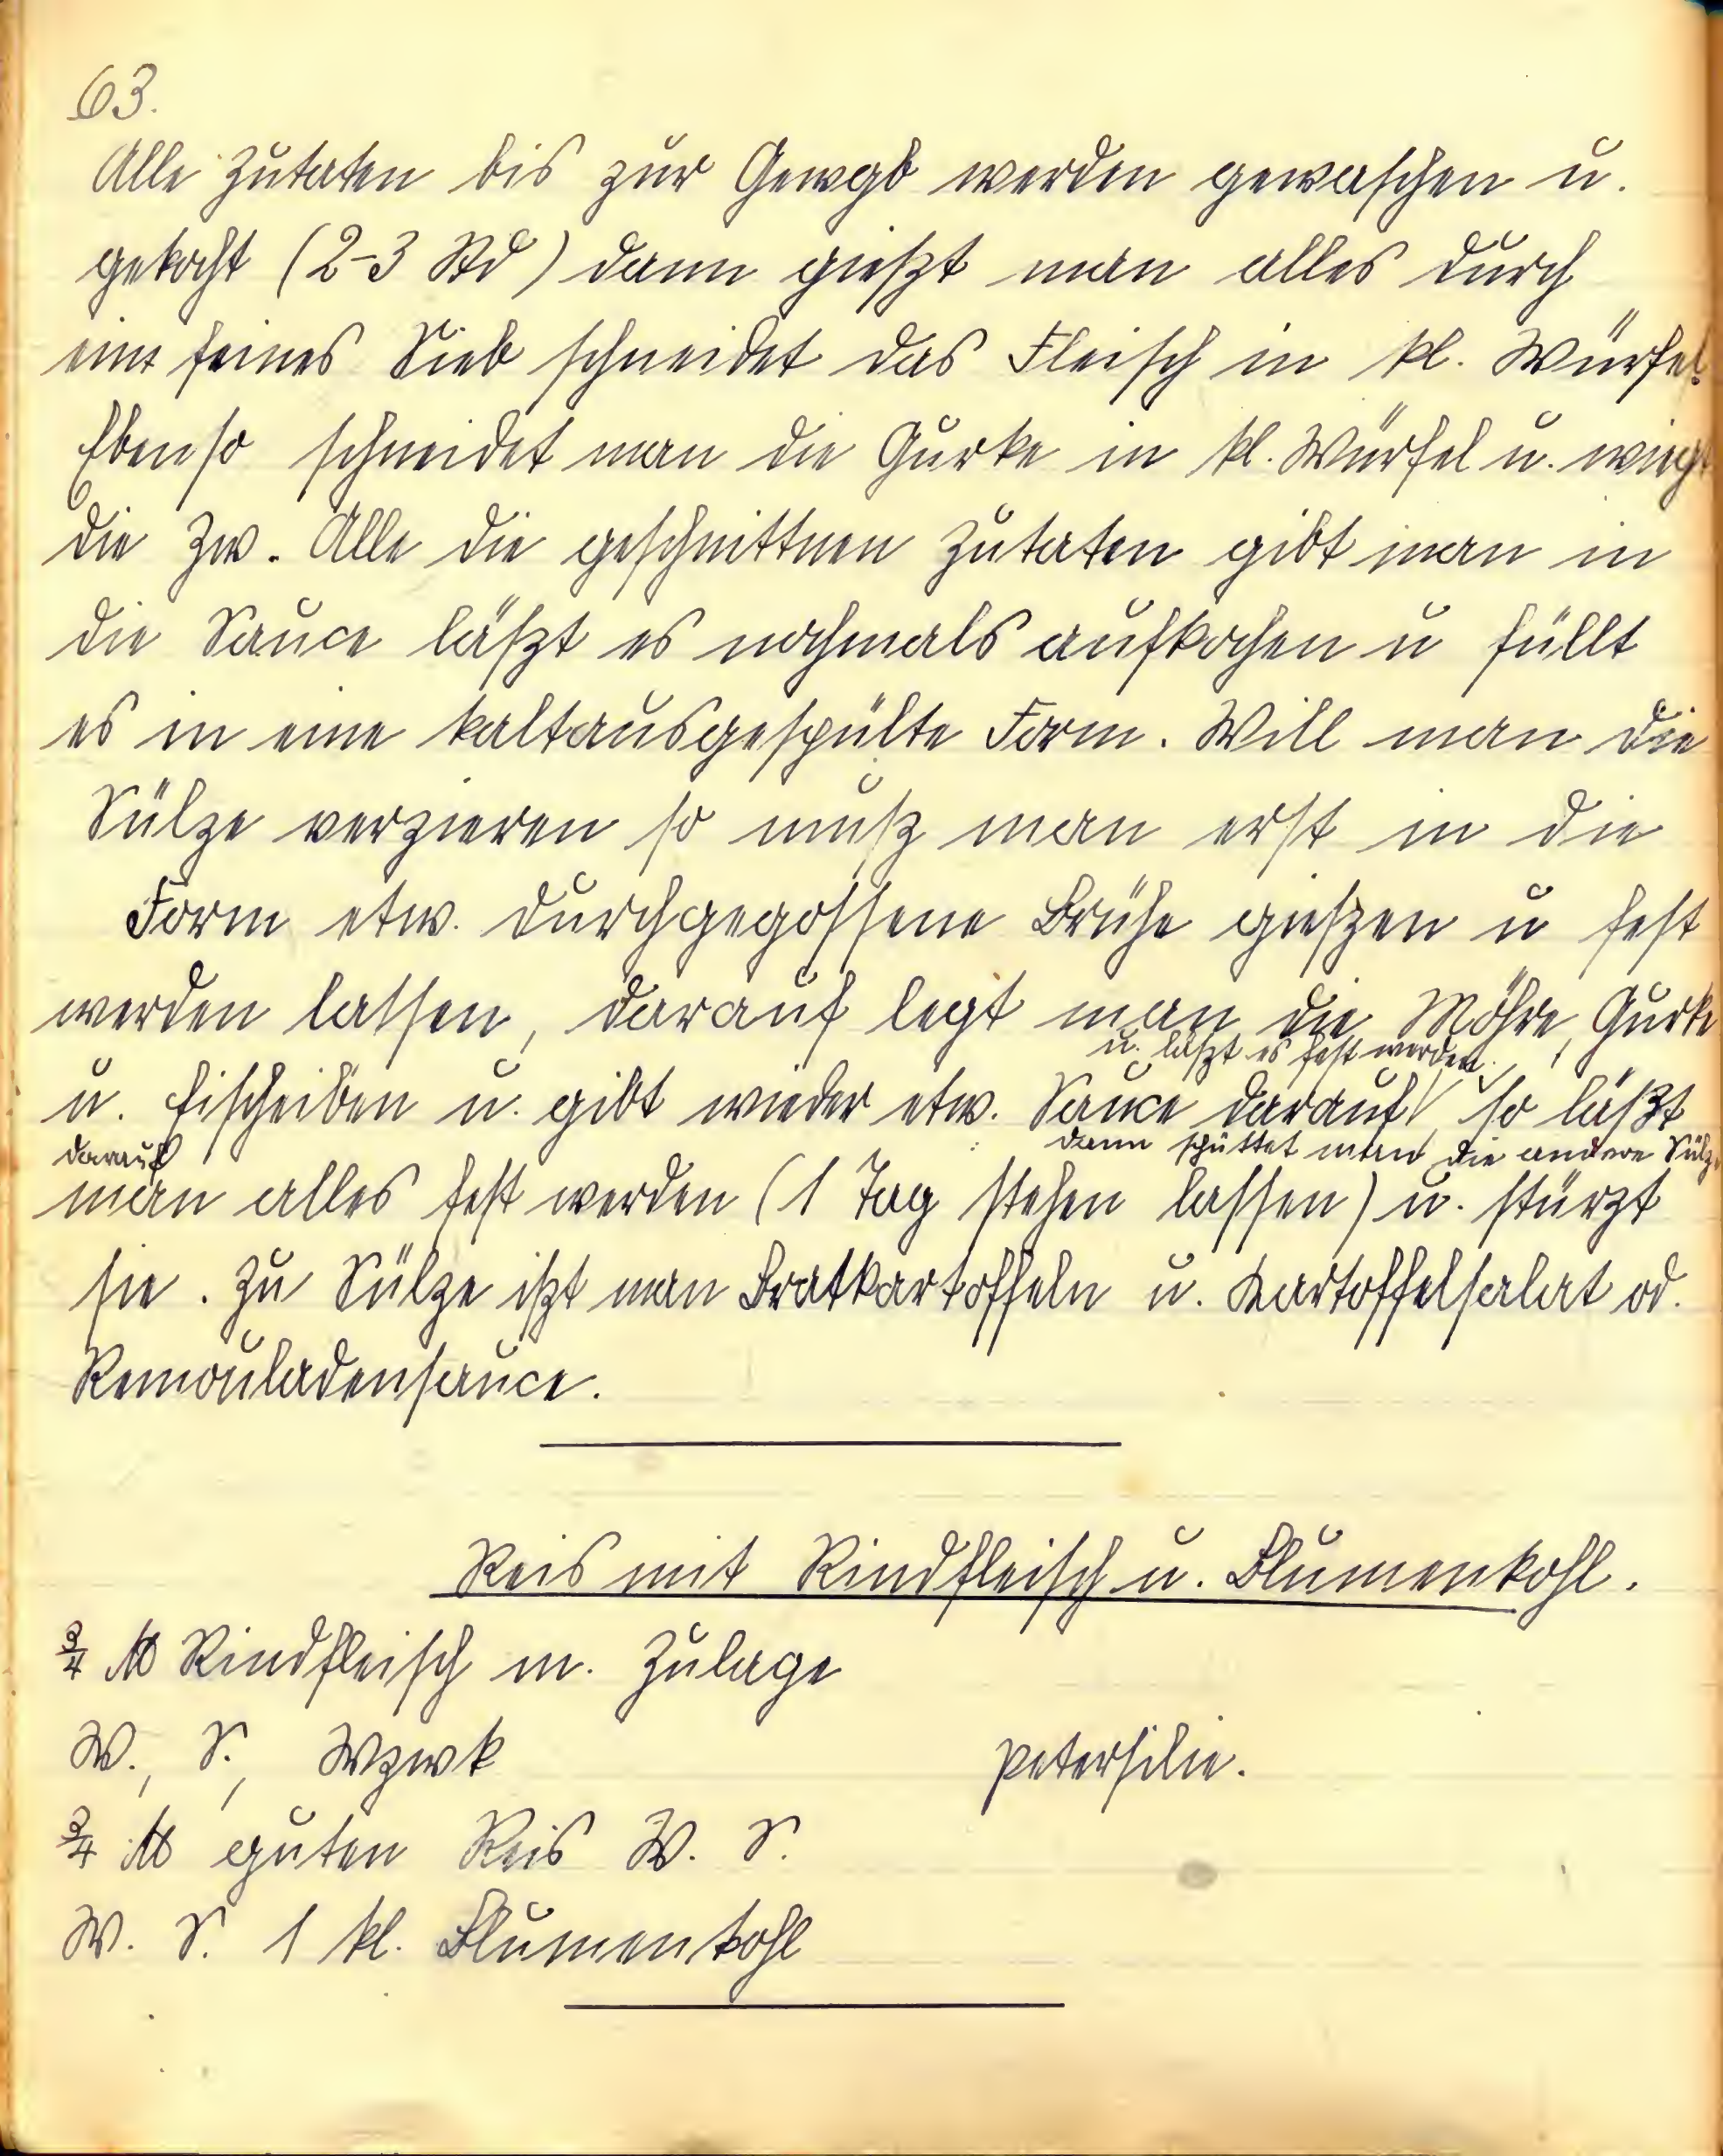 63.
Alle Zutaten bis zur Gewgb werden gewaschen u.
gekocht (2-3 Std) dann gießt man alles durch
ein feines Sieb schneidet das Fleisch in kl. Würfel.
Ebenso schneidet man die Gurke in kl. Würfel u. wiegt
die Zw. Alle die geschnittnen Zutaten gibt man in
die Sauce läßt es nochmals aufkochen u füllt
es in eine kaltausgespülte Form. Will man die
Sülze verzieren so muß man erst in die
Form etw. durchgegossene Brühe gießen u fest
werden lassen, darauf legt man die Möhre, Gurke
u. läßt es fest werden.
u. Eischeiben u. gibt wieder etw. Sauce darauf, so läßt
darauf dann schüttet man die andere Sülze
man alles fest werden (1 Tag stehen lassen) u. stürzt
sie. Zu Sülze ißt man Bratkartoffeln u. Kartoffelsalat od.
Remouladensauce.
Reis mit Rindfleisch u. Blumenkohl.
3/4 ℔ Rindfleisch m. Zulage
W., S., Wzwk petersilie.
3/4 ℔ guten Reis W. S.
W. S. 1 kl. Blumenkohl